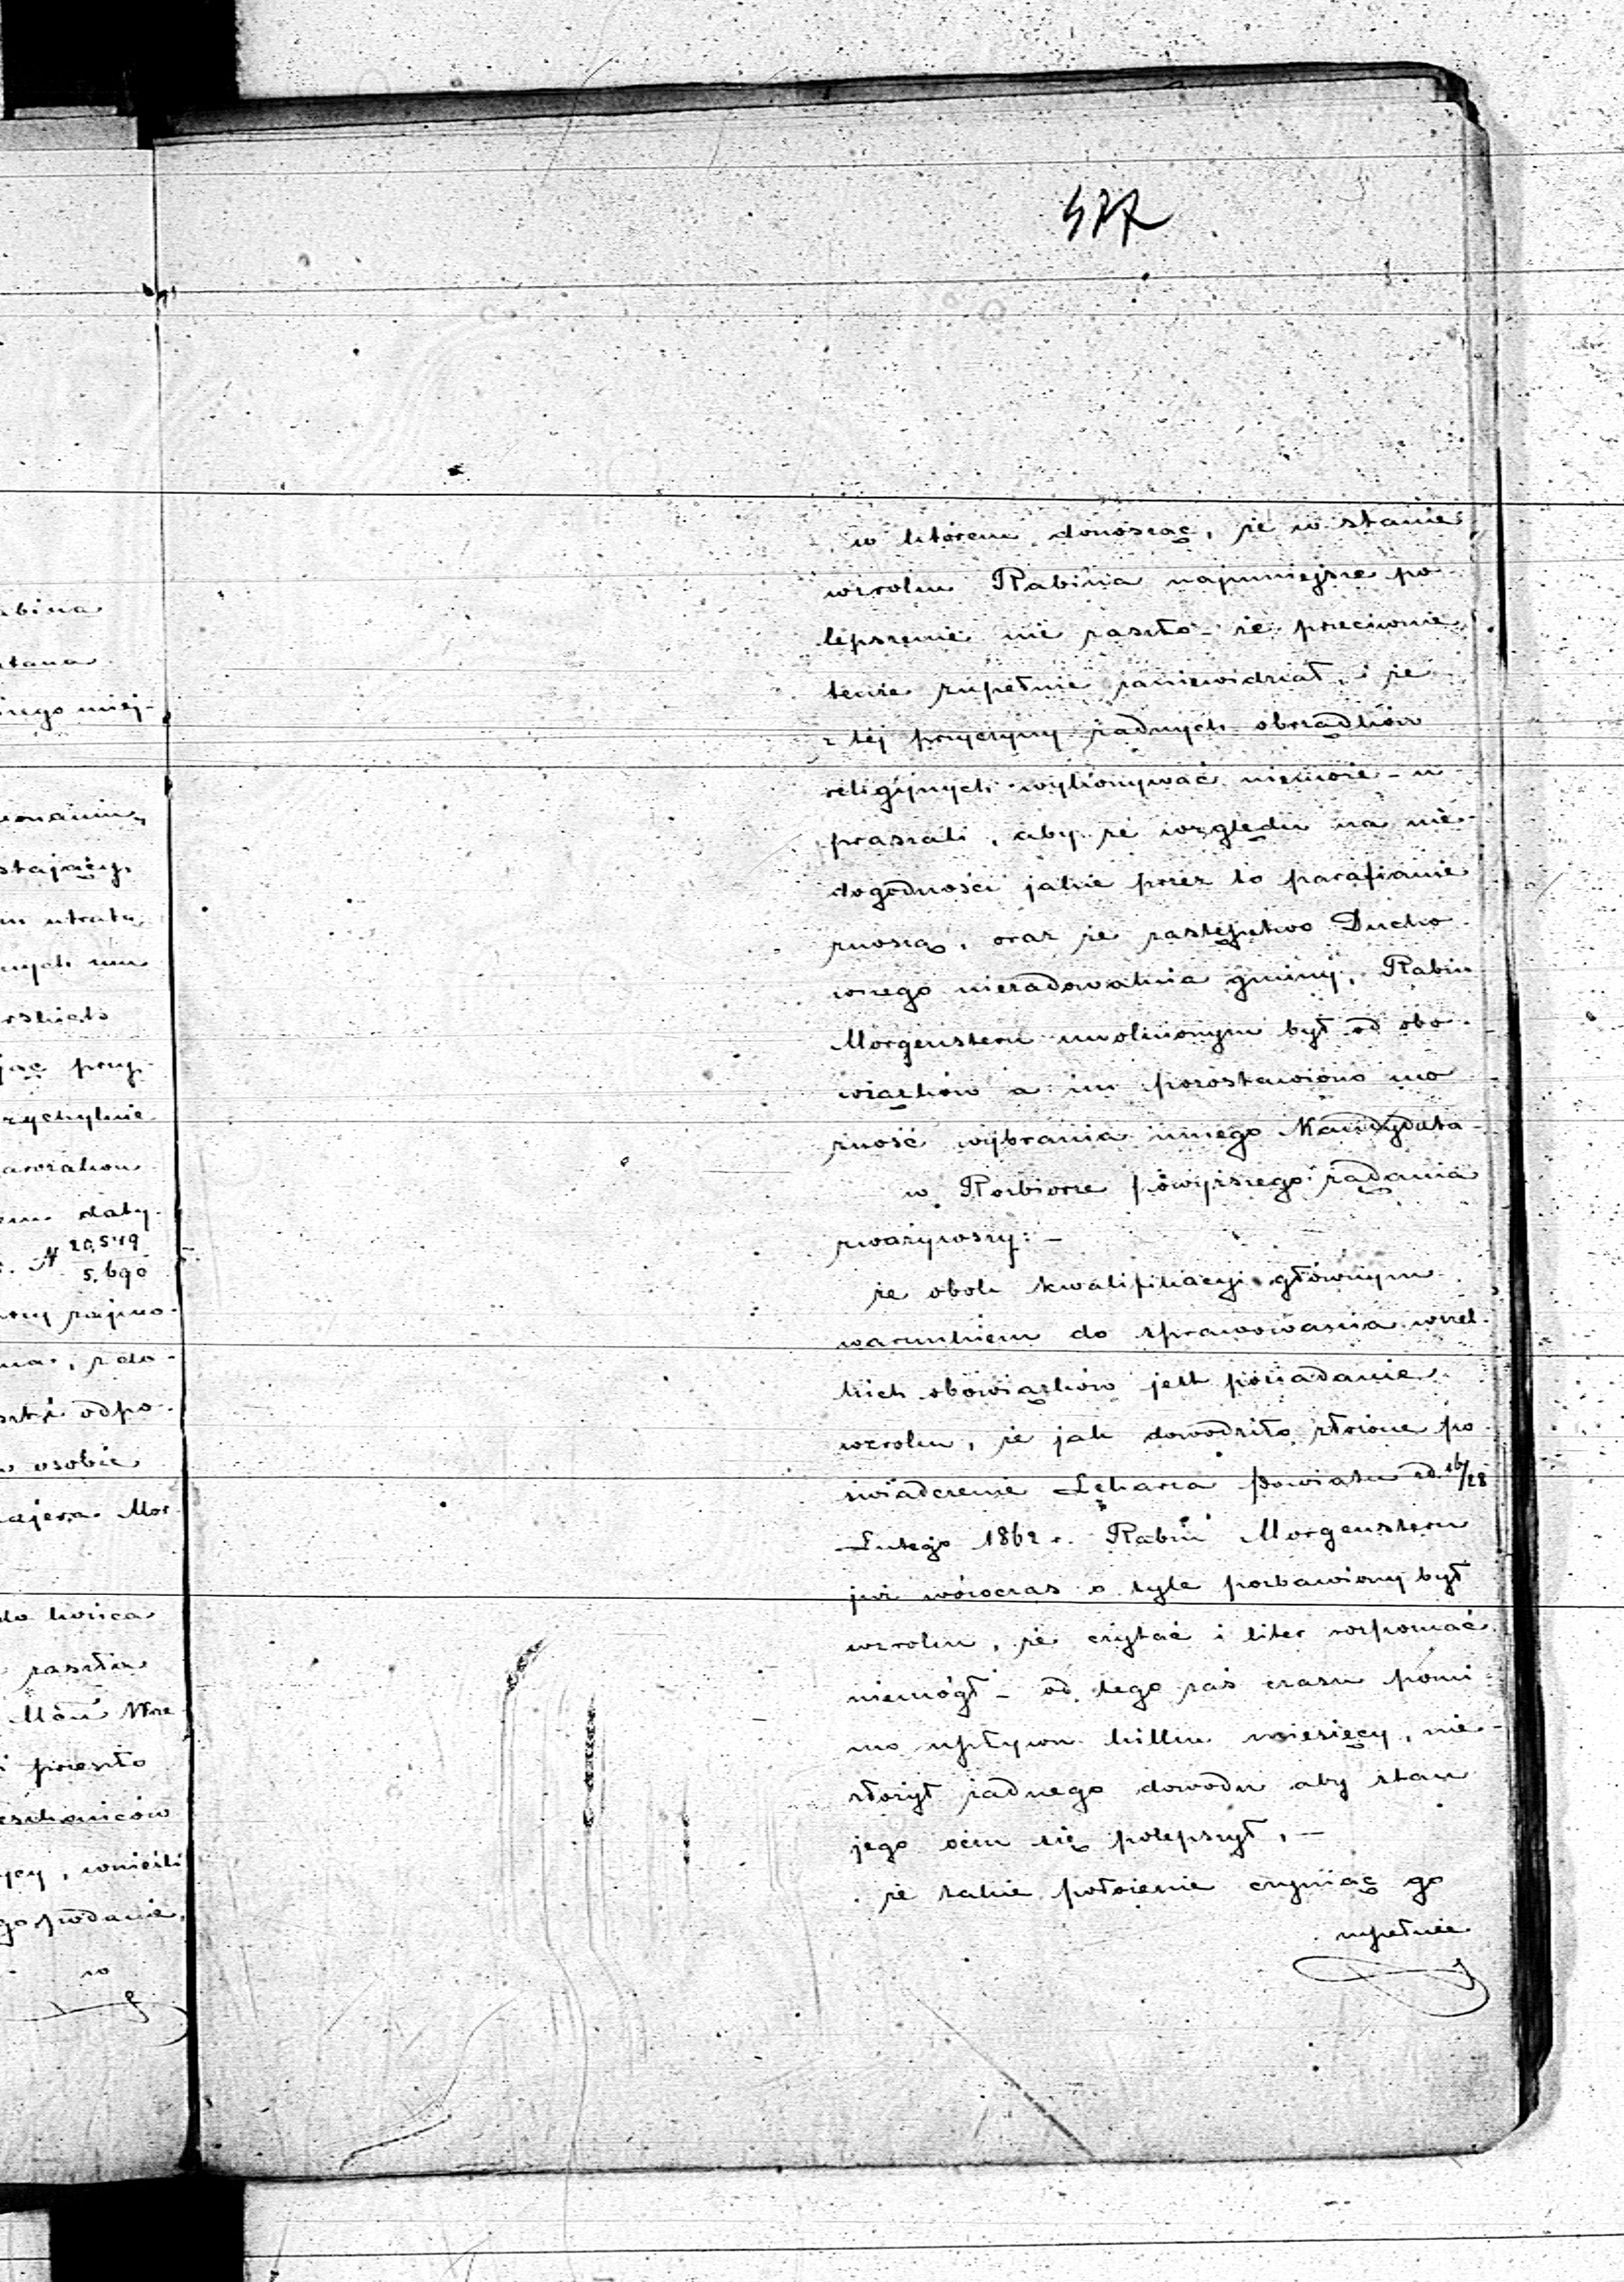 abina
stana
nego miej-
stający
utrata
nych mu
jąc przy-
rzychylnie
daty
N 20,549
5,690
zajmo-
na, z do-
odpo-
osobie
ajera Mor-
do końca
zaszła
przeszło
, wnieśli
go podanie,
w
577
w którem donosząc, że w stanie
wzroku Rabina najmniejsze po-
lepszenie nie zaszło – że przeciwnie
tenże zupełnie zaniewidział, i że
z tej przyczyny żadnych obrządków
religijnych wykonywać niemoże – u-
praszali, aby ze względu na nie-
dogodności jakie przez to parafianie
znoszą, oraz że zastępstwo Ducho-
wnego niezadowalnia gminy, Rabin
Morgenstern uwolnionym był od obo-
wiązków a im pozostawiono mo-
żność wybrania innego Kandydata –
w Rozbiorze powyższego żądania
zważywszy: –
że obok kwalifikacyi głównym
warunkiem do sprawowania wszel-
kich obowiązków jest posiadanie
wzroku, że jak dowodziło złożone po-
świadczenie Lekarza Powiatu z d. 16/28
Lutego 1862 r. Rabin Morgenstern
już wówczas o tyle pozbawiony był
wzroku, że czytać i liter rozpoznać
niemógł – od tego zaś czasu pomi-
mo upływu kilku miesięcy, nie-
złożył żadnego dowodu aby stan
jego oczu się polepszył, –
że takie położenie czyniąc go
zupełnie